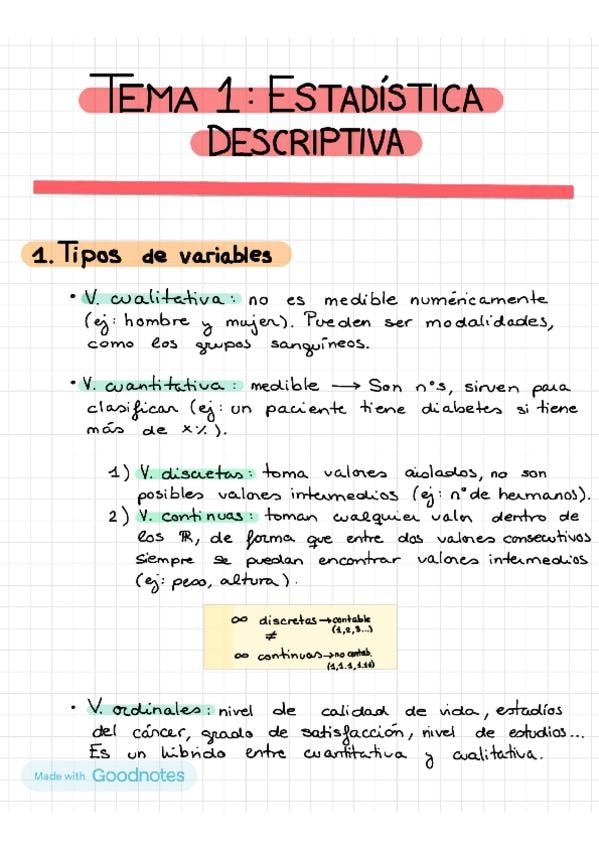 TEMA 1: ESTADÍSTICA
DESCRIPTIVA
1. Tipos de variables
• V. cualitativa: no es medible numéricamente
(ej: hombre y mujer). Pueden ser modalidades,
como los grupos sanguíneos.
• V. cuantitativa: medible → Son nºs, sirven para
clasificar (ej: un paciente tiene diabetes si tiene
más de x%).
1) V. discretas: toma valores aislados, no son
posibles valores intermedios (ej: nº de hermanos).
2) V. continuas: toman cualquier valor dentro de
los ℝ, de forma que entre dos valores consecutivos
siempre se puedan encontrar valores intermedios
(ej: peso, altura).
∞ discretas → contable
(1,2,3...)
≠
∞ continuas → no contab.
(1,1.1,1.11)
• V. ordinales: nivel de calidad de vida, estadíos
del cáncer, grado de satisfacción, nivel de estudios...
Es un híbrido entre cuantitativa y cualitativa.
Made with Goodnotes